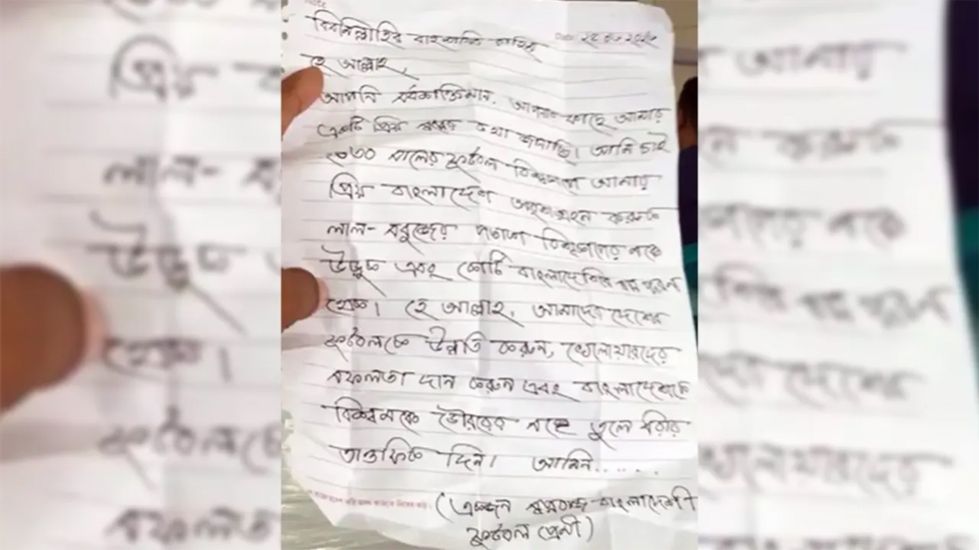 বিসমিল্লাহির রাহমানির রাহিম
হে আল্লাহ,
আপনি সর্বশক্তিমান, আপনার কাছে আমার
একটি প্রিয় স্বপ্নের কথা জানাচ্ছি। আমি চাই
২০৩০ সালের ফুটবল বিশ্বকাপে আমার
প্রিয় বাংলাদেশ অংশগ্রহন করুক
লাল-সবুজের পতাকা বিশ্বকাপের মঞ্চে
উড়ুক এবং কোটি বাংলাদেশির স্বপ্ন পূরণ
হোক। হে আল্লাহ, আমাদের দেশের
ফুটবলকে উন্নতি করুন, খেলোয়ারদের
সফলতা দান করুন এবং বাংলাদেশকে
বিশ্বমঞ্চে গৌরবের সঙ্গে তুলে ধরার
তাওফিক দিন। আমিন.....
(একজন স্বপ্নবাজ বাংলাদেশী
ফুটবল প্রেমী)